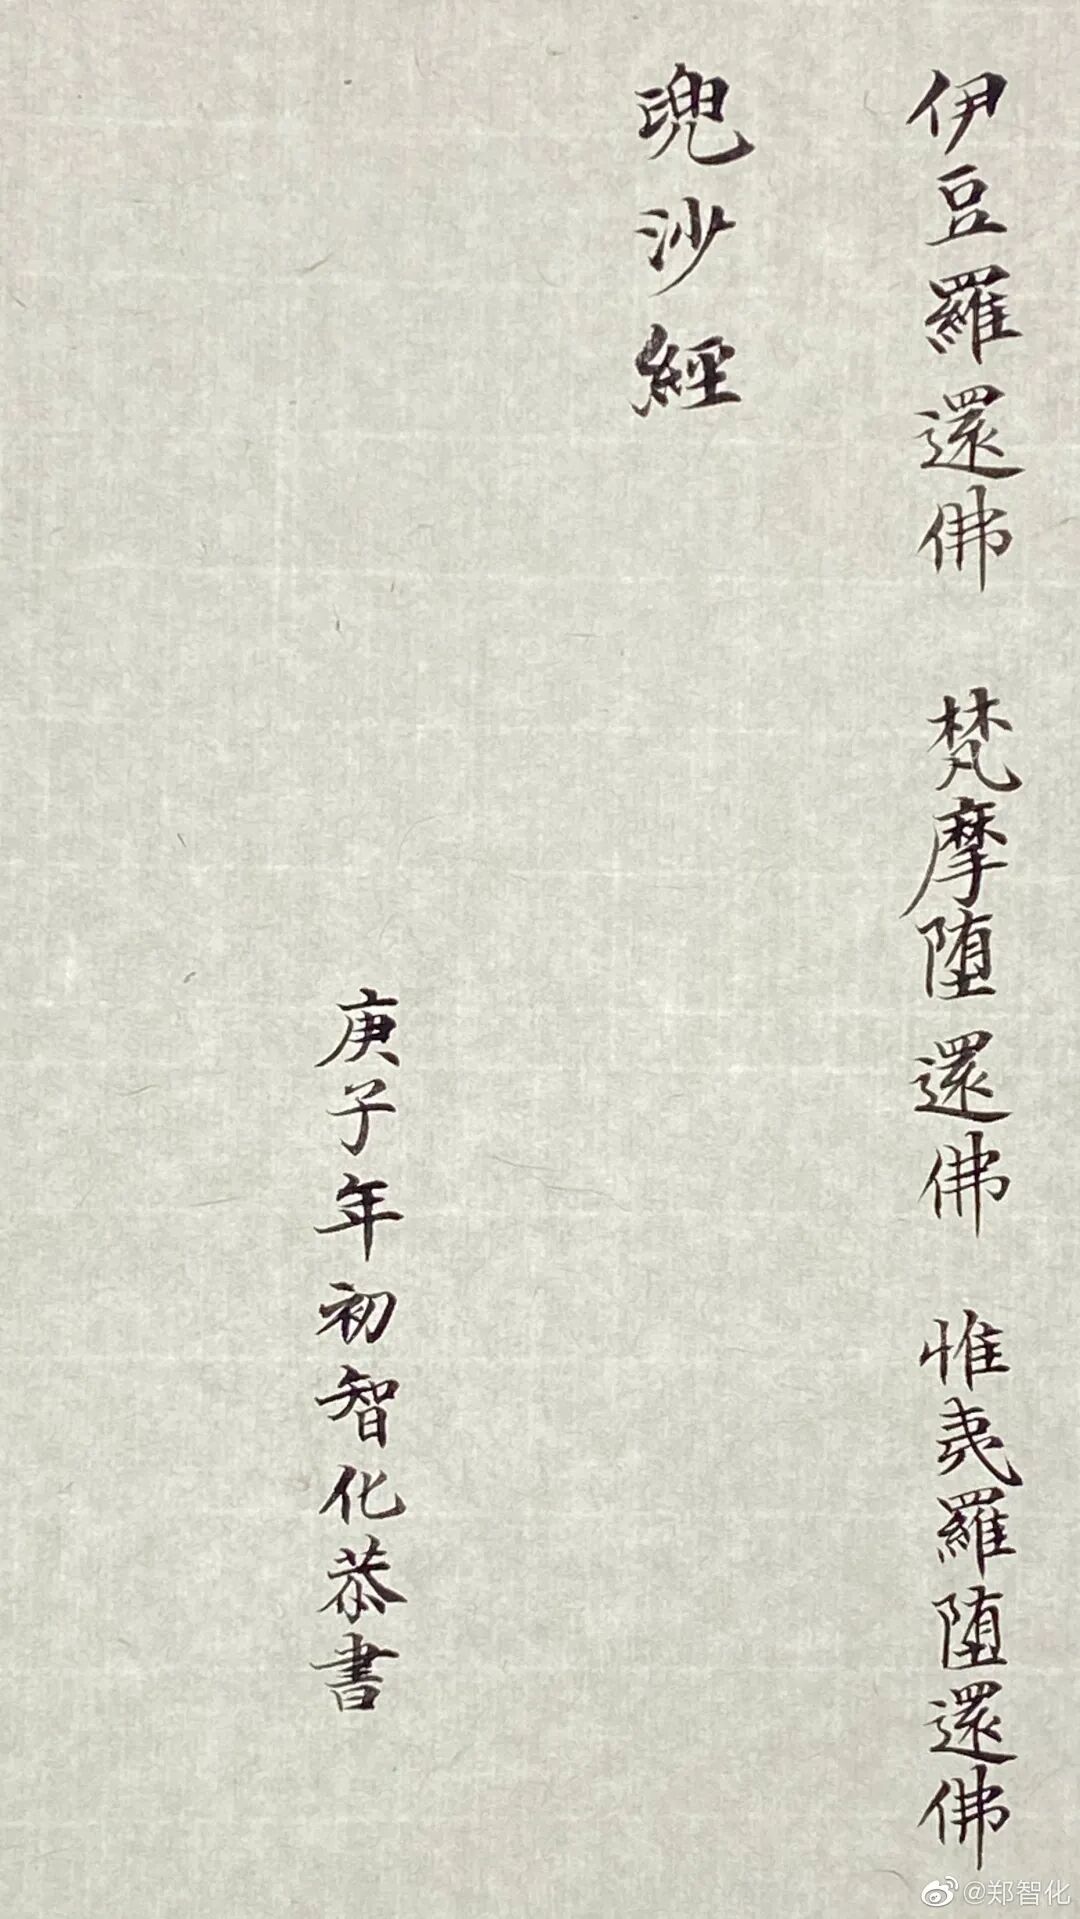 伊豆羅還佛 梵摩堕還佛 惟夷羅堕還佛
兜沙經
庚子年初智化恭書
@郑智化